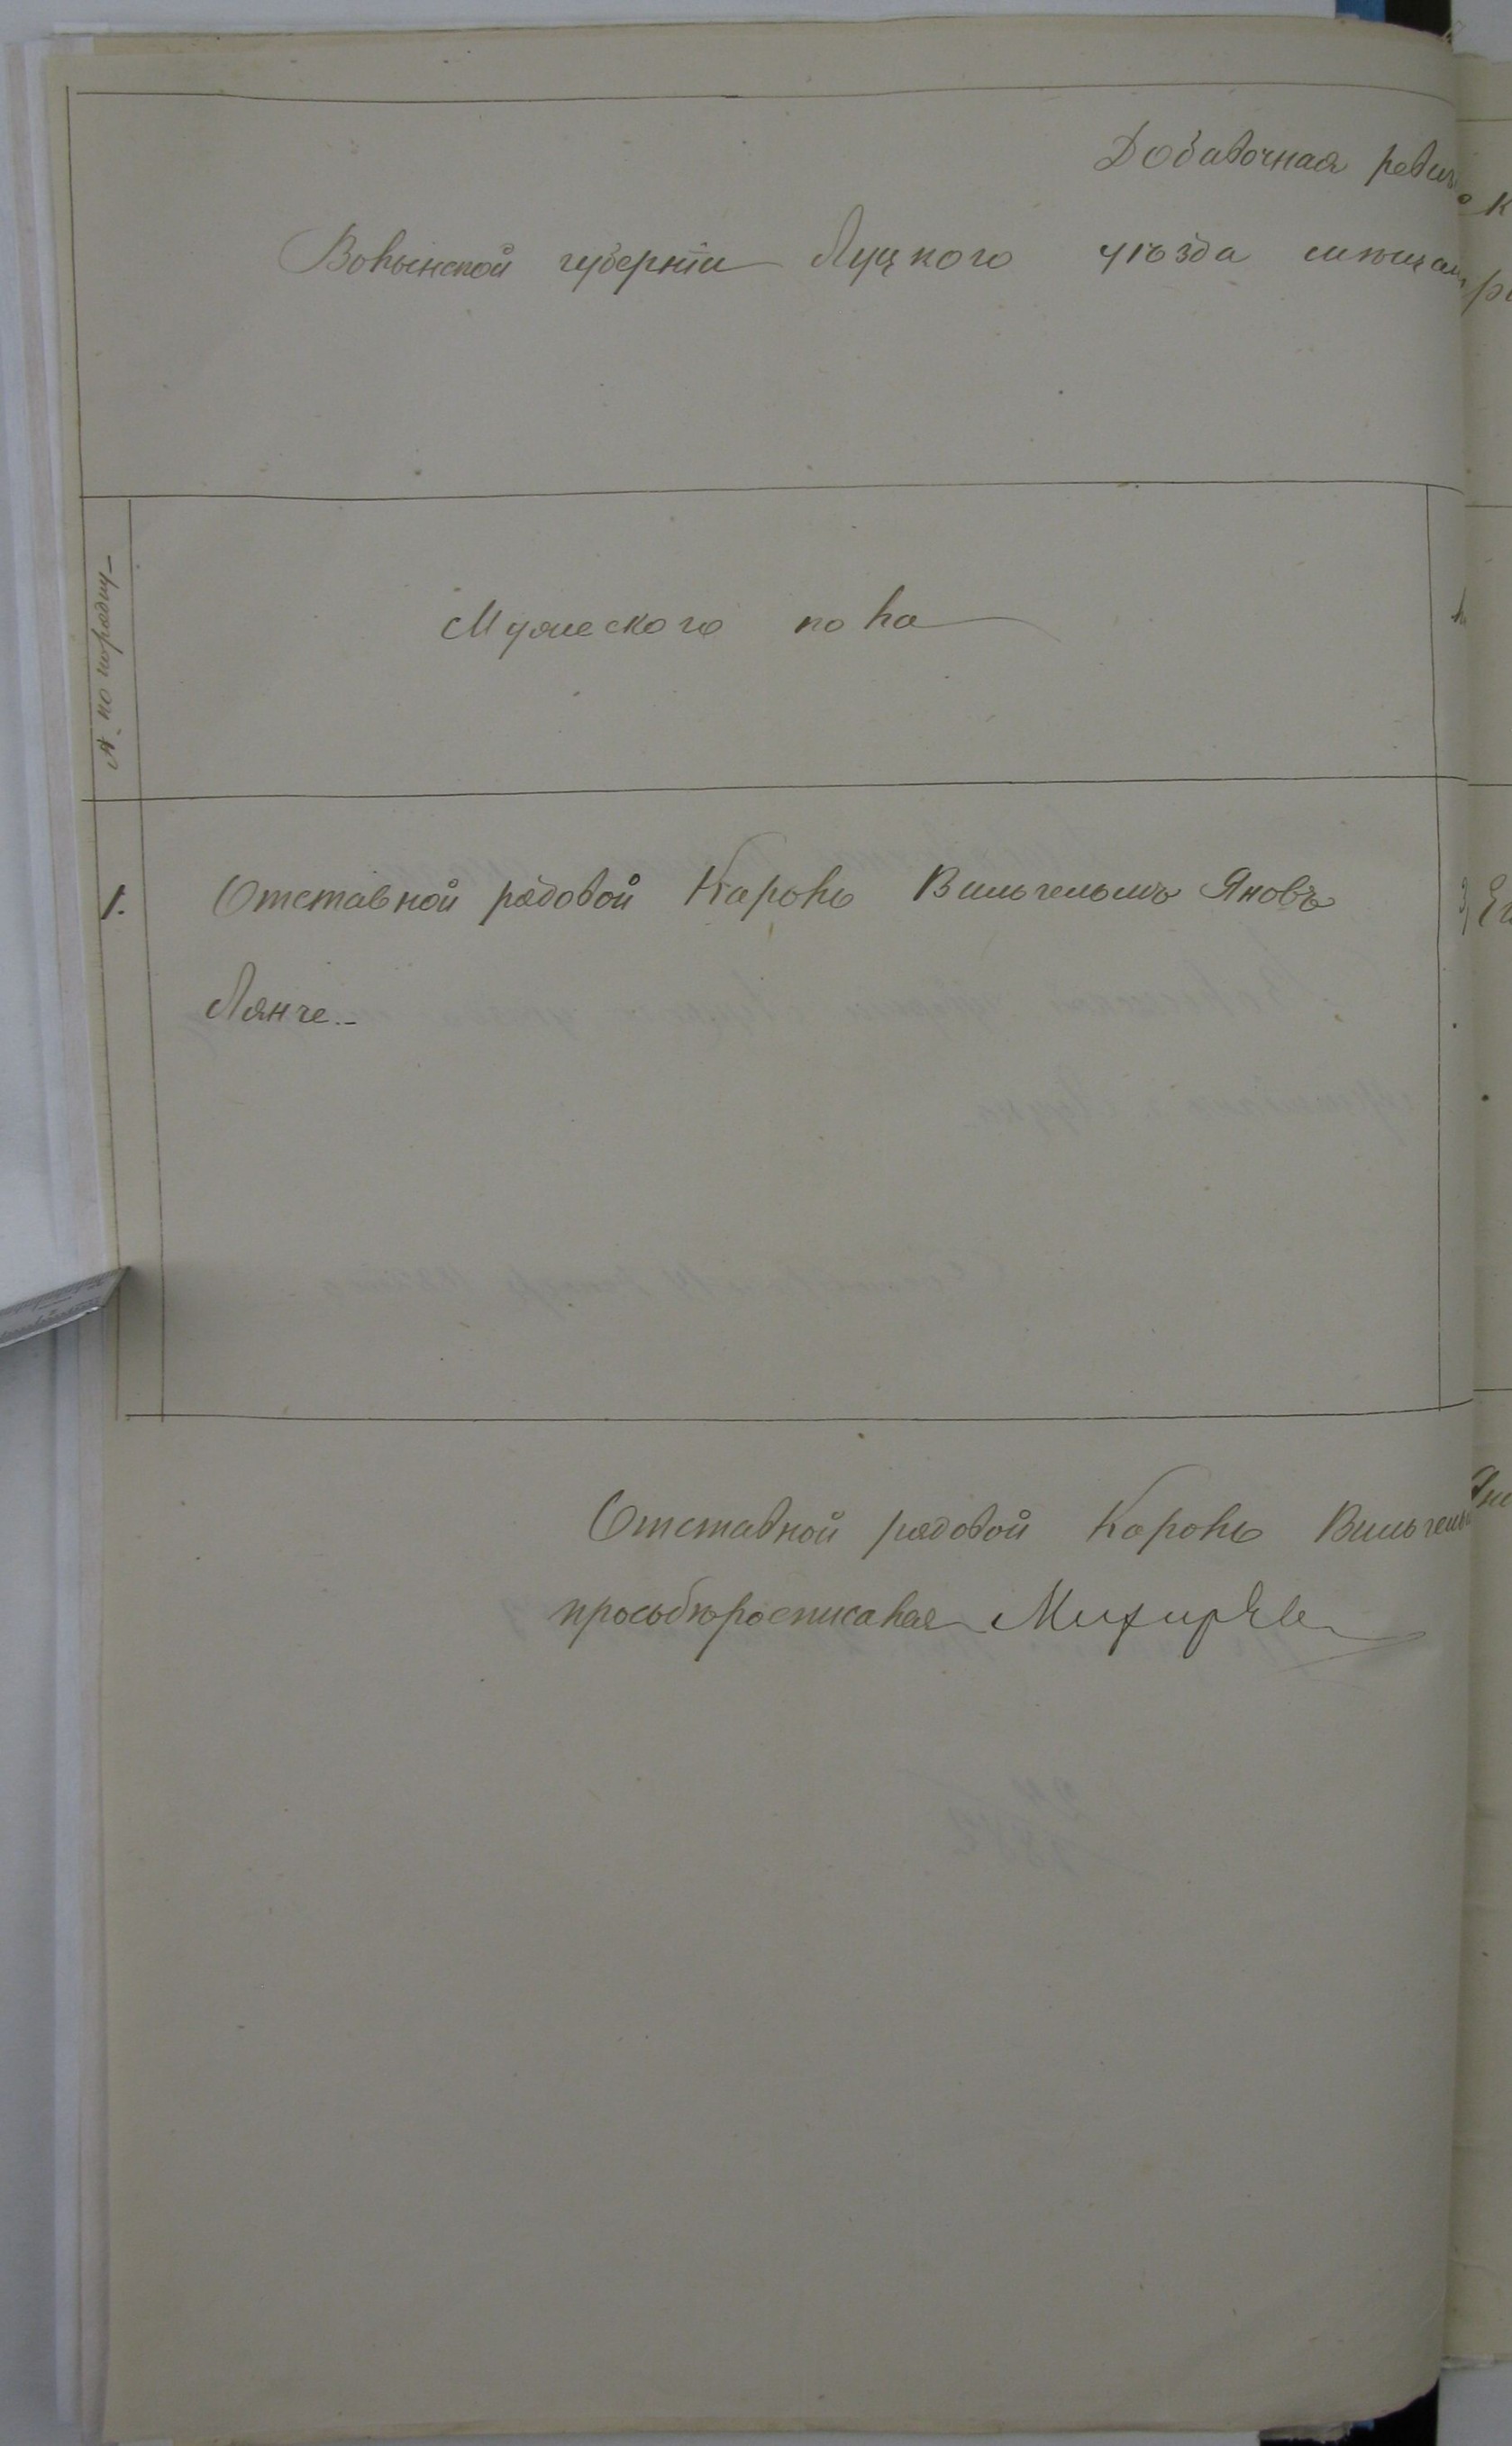 Добавочная ревиз
Волынской губерніи Луцкого уѣзда мѣщан
№ по порядку
Мужеского пола
1. Отставной рядовой Кароль Вильгельмъ Яновъ
Лянге.
Отставной рядовой Кароль Вильгель
просьбѣ росписался